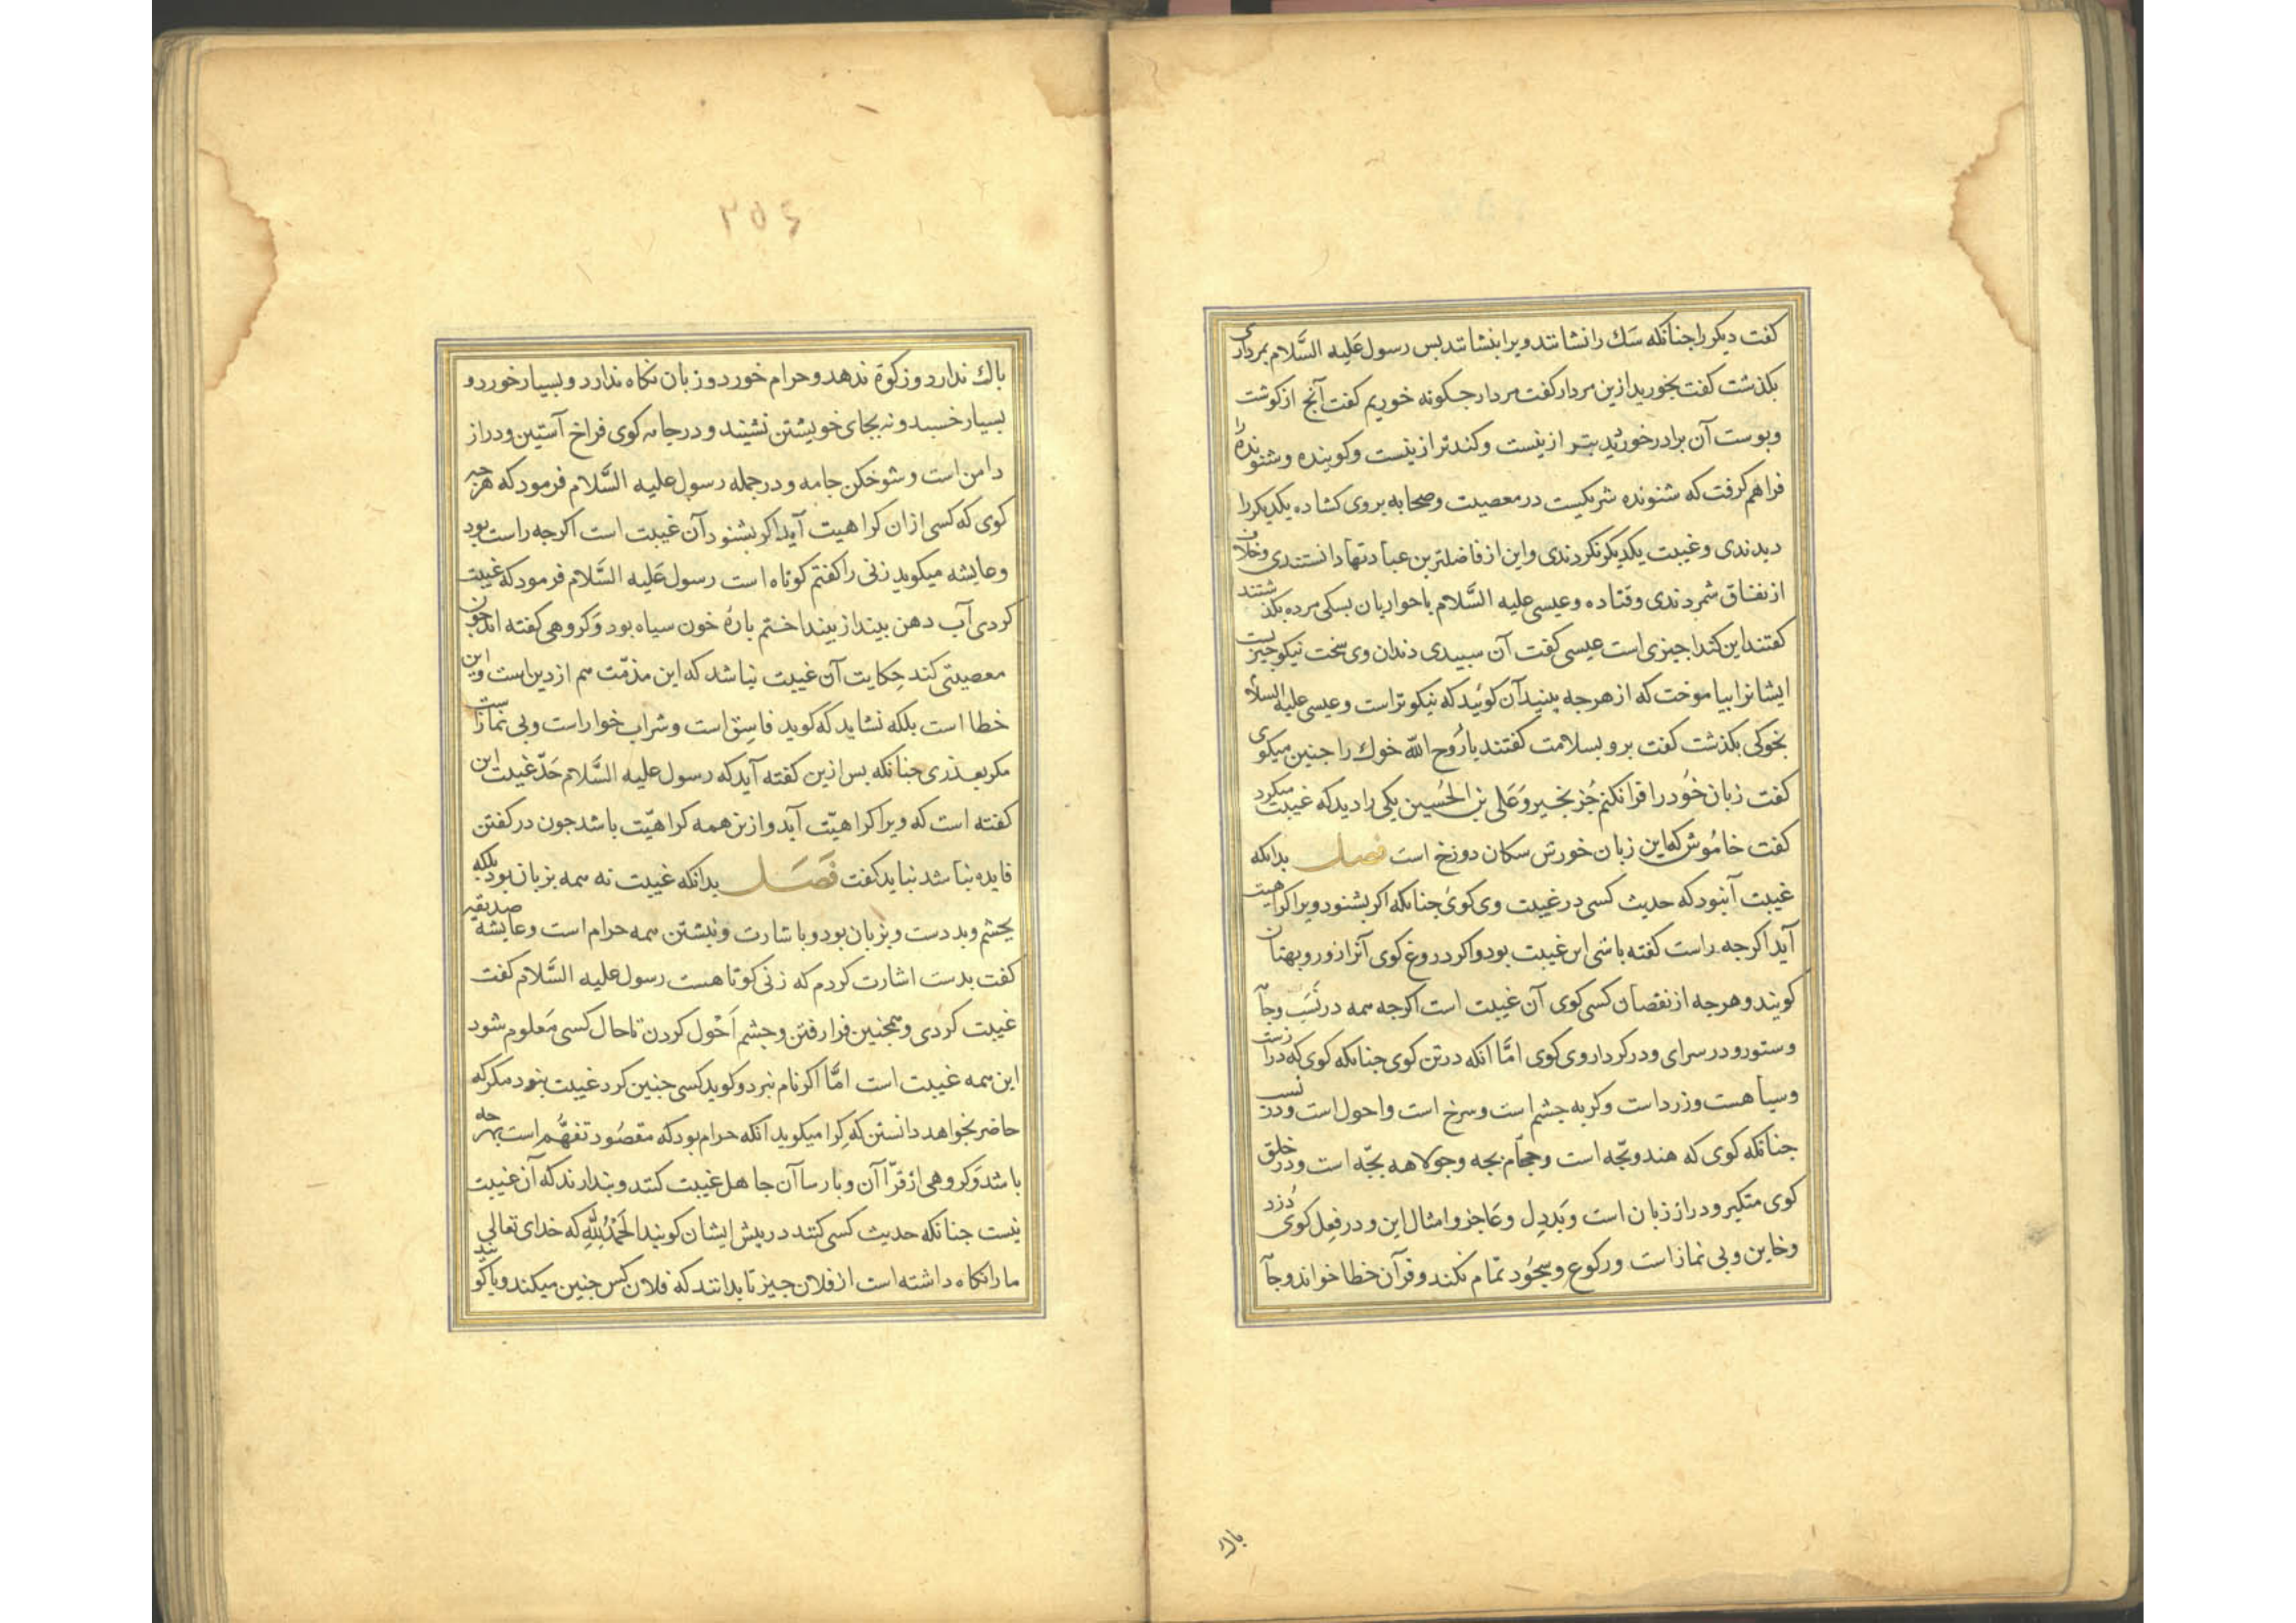 كفت ديكر را جنانكه سَك را نشانند ويرا بنشاندند بس رسول عَليه السَّلام بمرداری
بكذشت كفت بخوريد ازين مردار كفت مردار جكونه خوريم كفت آنج از كوشت
وبوست آن برادر خورديد بتر ازينست وكنده‌تر ازينست وكوينده وشنونده را
فراهم كرفت كه شنونده شريكيست در معصيت وصحابه بروی كشاده يكديكر را
ديدندی وغيبت يكديكر نكردندی واين از فاضلترين عبادتها دانستندی وخلاف
از نفاق شمردندی وقتاده وعيسی عليه السَّلام با حواريان بسكی مرده بكذشتند
كفتند اين كندا جيزی است عيسی كفت آن سبيدی دندان وی سخت نيكو جيزيست
ايشانرا بياموخت كه از هرجه بينيد آن كوئيد كه نيكوتر است وعيسی عليه السلام
بخوكی بكذشت كفت برو بسلامت كفتند يا رُوح الله خوك را جنين ميكوی
كفت زبان خُود را فرا نكنم جُز بخير وَعَلی بن الحُسين يكی را ديد كه غيبت ميكرد
كفت خامُوش كه اين زبان خورش سكان دوزخ است فصل بدانكه
غيبت آنبود كه حديث كسی در غيبت وی كوئ جنانكه اكر بشنود ويرا كراهيت
آيد اكرجه راست كفته باشی اين غيبت بود واكر دروغ كوی آنرا زور وبهتان
كويند وهرجه از نقصان كسی كوی آن غيبت است اكرجه همه در نَسَب وجامه
وستور ودر سرای ودر كردار وی كوی امَّا آنكه در تن كوی جنانكه كوی كه دراز است
وسياهست وزرد است وكربه جشم است وسرخ است واحول است ودر نسب
جنانكه كوی كه هندو بچّه است وحجّام بچه وجولاهه بچّه است ودر خلق
كوی متكبر ودراز زبان است وَبَددِل وعَاجز وامثال اين ودر فِعِل كوی دُزد
وخاين وبی نماز است وركوع وسجُود تمام نكند وقرآن خطا خواند وجامه
باك
٢٥٤
باك ندارد وزكوة ندهد وحرام خورد وزبان نكاه ندارد وبسيار خورد و
بسيار خسبد ونه بجای خويشتن نشيند ودر جامه كوی فراخ آستين ودراز
دامن است وشوخكن جامه ودر جمله رسول عليه السَّلام فرمود كه هرجه
كوی كه كسی از ان كراهيت آيد اكر بشنود آن غيبت است اكرجه راست بود
وعايشه ميكويد زنی را كفتم كوتاه است رسول عَليه السَّلام فرمود كه غيبت
كردی آب دهن بينداز بينداختم بارهٔ خون سياه بود وَكروهی كفته اند جون
معصيتی كند حِكايت آن غيبت نباشد كه اين مذمّت هم از دين است واين
خطا است بلكه نشايد كه كويد فاسِق است وشراب خوار است وبی نماز است
مكر بعذری جنانكه بس ازين كفته آيد كه رسول عليه السَّلام حَدّ غيبت اين
كفته است كه ويرا كراهيّت آيد وازين همه كراهيّت باشد جون در كفتن
فايده نباشد نبايد كفت فَصَل بدانكه غيبت نه همه بزبان بود بلكه
بجشم وبدست وبزبان بود وباشارت ونبشتن همه حرام است وعايشه صديقه
كفت بدست اشارت كردم كه زنی كوتاهست رسول عليه السَّلام كفت
غيبت كردی وهمجنين فرا رفتن وجشم اَحْول كردن تا حال كسی مَعلوم شود
اين همه غيبت است امَّا اكر نام نبرد وكويد كسی جنين كرد غيبت نبود مكر كه
حاضر بخواهد دانستن كه كِرا ميكويد انكه حرام بود كه مقصُود تفهُّم است بهر جه
باشد وَكروهی از قرّاآن وبارساآن جاهل غيبت كنند وبندارند كه آن غيبت
نيست جنانكه حديث كسی كنند در بيش ايشان كويند الحَمْدُ لِلّٰهِ كه خدای تعالی
ما را نكاه داشته است از فلان جيز تا بدانند كه فلان كس جنين ميكند ويا كويند